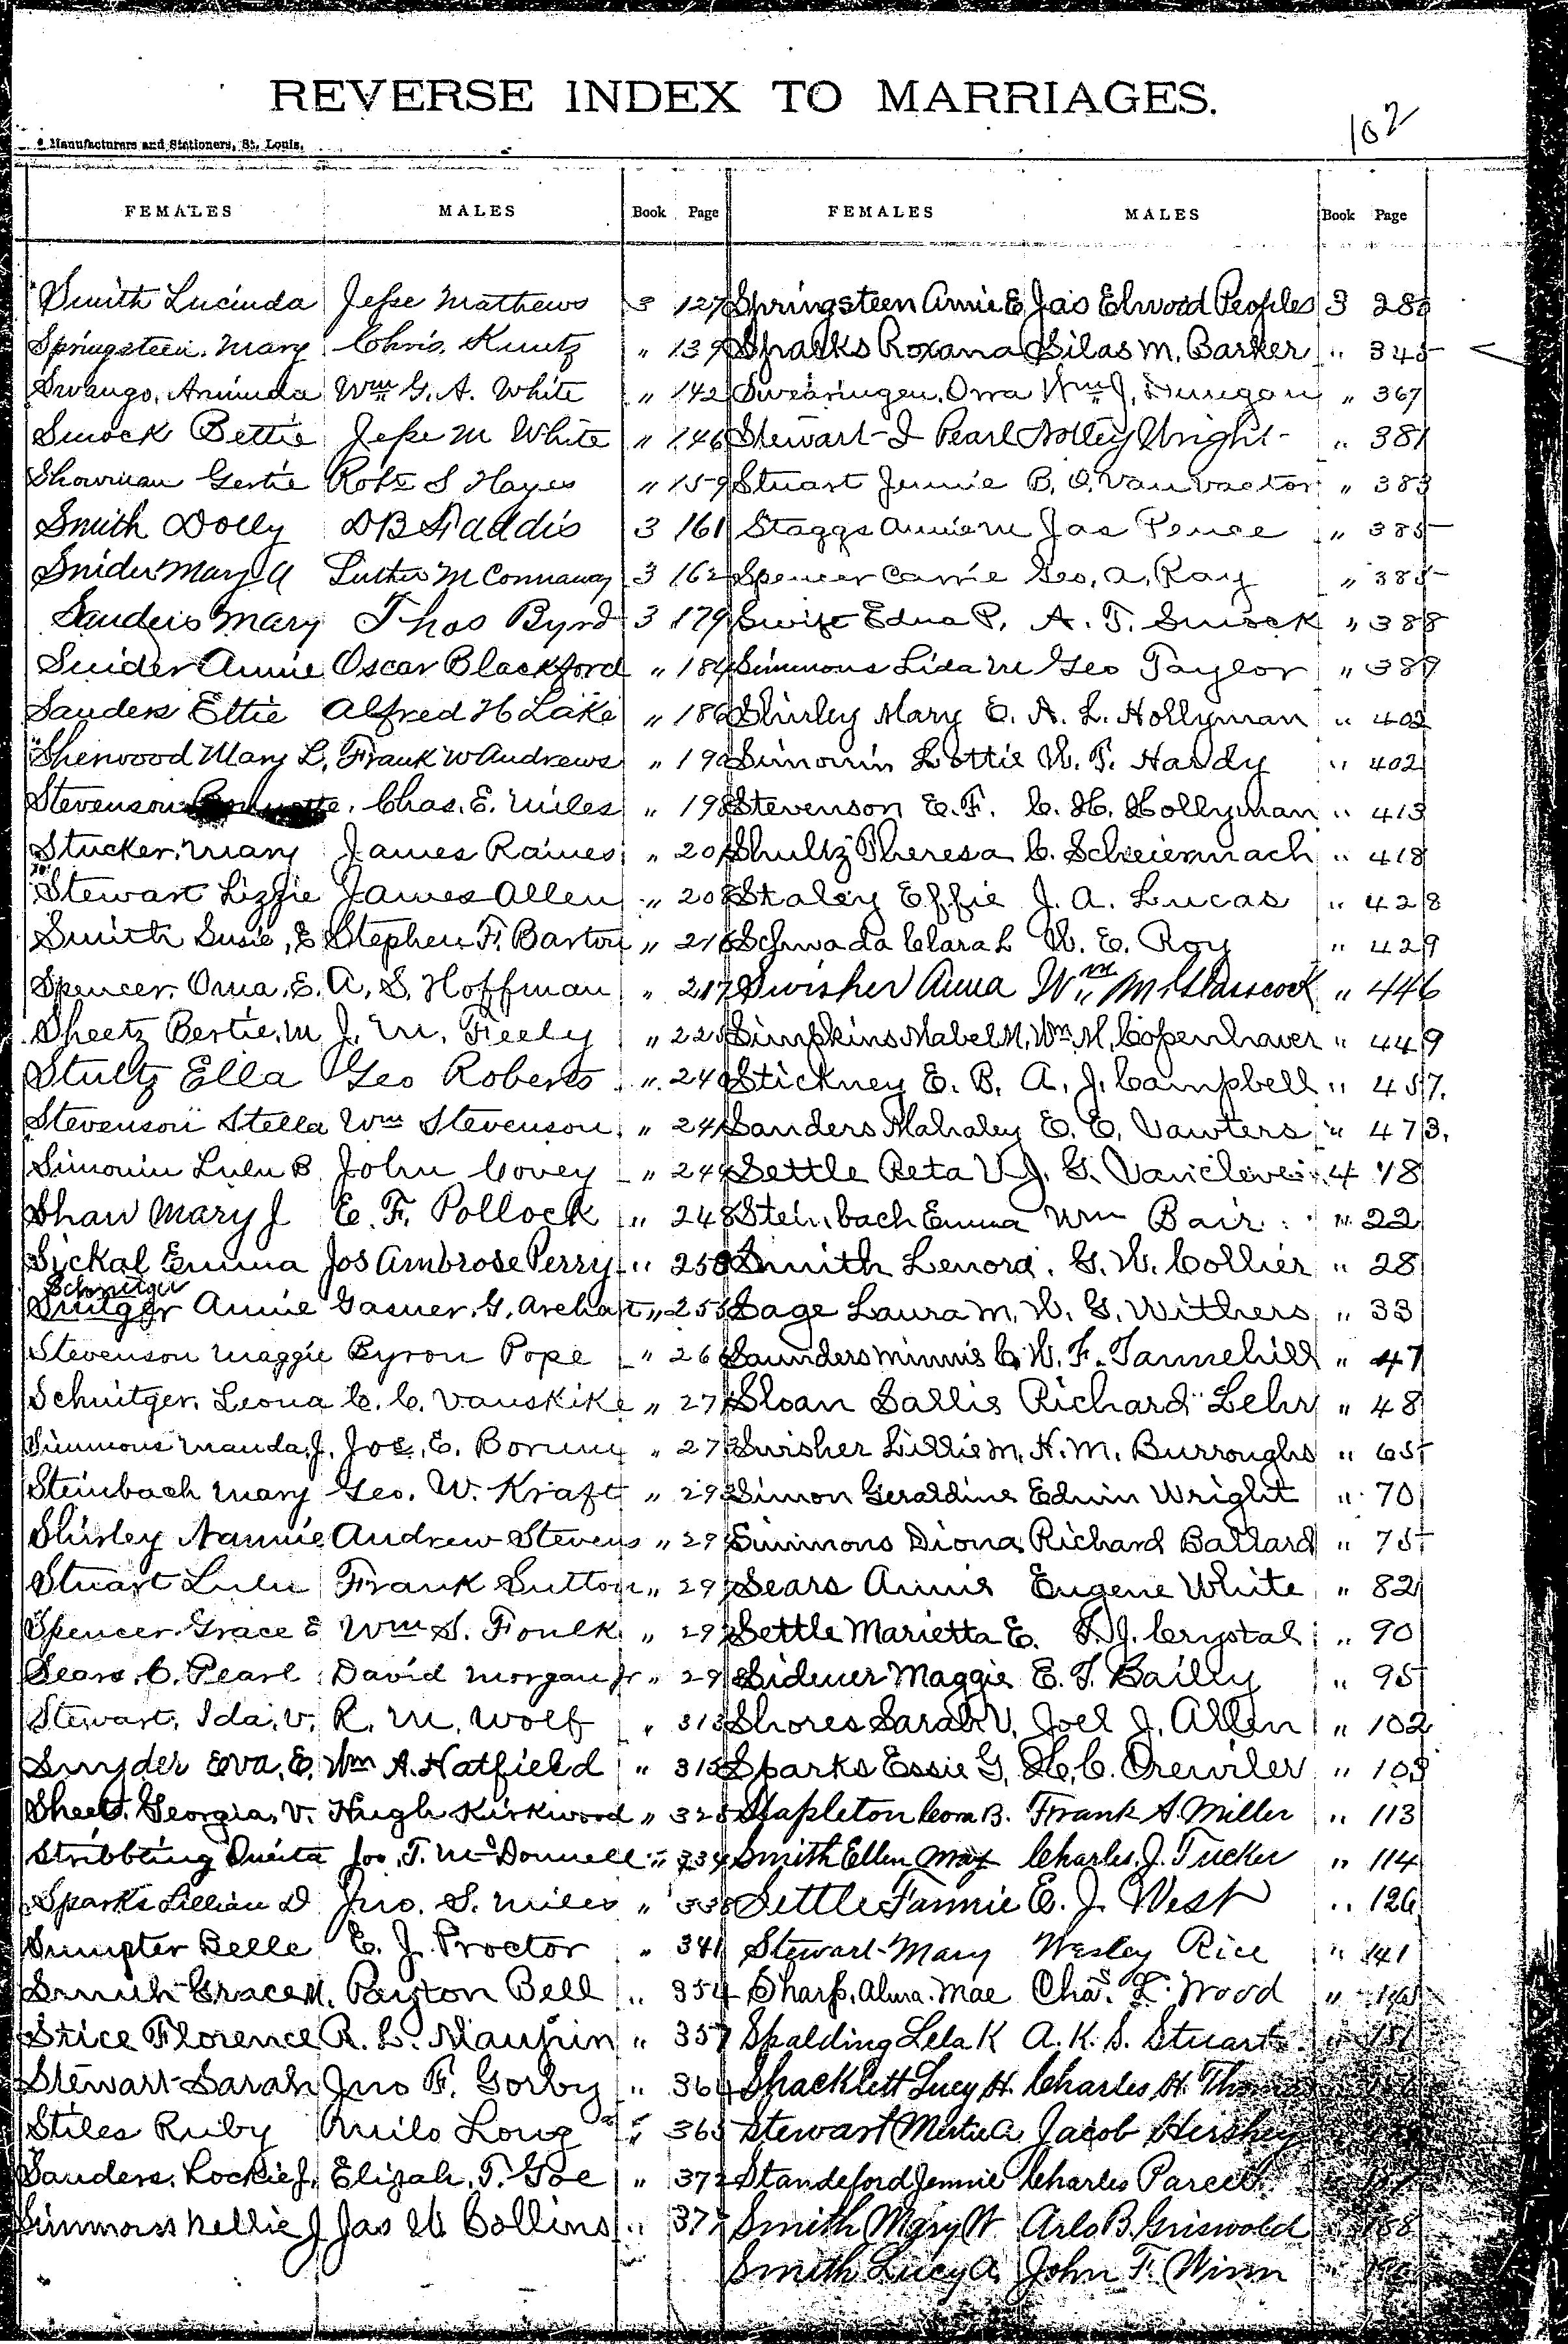 REVERSE INDEX TO MARRIAGES.
102
Manufacturers and Stationers, St. Louis.
FEMALES MALES Book Page FEMALES MALES Book Page
Smith Lucinda Jesse Mathews 3 127
Springsteen, Mary Chris. Kuntz " 139
Swango, Aminda Wm G. A. White " 142
Smock Bettie Jesse M White " 146
Showman Gertie Robt S Hayes " 159
Smith Dolly D B Gaddis 3 161
Snider Mary A Luther M Connaway 3 162
Sanders Mary Thos Byrd 3 179
Snider Annie Oscar Blackford " 184
Sanders Ettie Alfred H Lake " 186
Sherwood Mary L. Frank W Andrews " 190
Stevenson Chas. E. Miles " 198
Stucker, Mary James Raines "
Stewart Lizzie James Allen " 208
Smith Susie, E Stephen F. Barton " 216
Spencer, Oma, E. A. S. Hoffman " 217
Sheetz Bertie. M J. M. Feely "
Stultz Ella Geo Roberts " 240
Stevenson Stella Wm Stevenson " 241
Simonin Lulu B John Covey "
Shaw Mary J E. F. Pollock " 248
Sickal Emma Jos Ambrose Perry " 250
Schnitger
Snitger Annie Gasner. G. Arehart "
Stevenson Maggie Byron Pope "
Schnitger, Leona C. C. Vanskike "
Simmons Manda, J. Jos. E. Borum "
Steinbach Mary Geo. W. Kraft "
Shirley Nannie Andrew Stevens "
Stuart Lulu Frank Sutton "
Spencer Grace E Wm S. Foulk "
Sears, C. Pearl David Morgan Jr "
Stewart, Ida, V. R. M. Wolf " 313
Snyder Eva, E. Wm A. Hatfield " 315
Sheets, Georgia, V. Hugh Kirkwood "
Stribbling Jos. T. McDonnell " 334
Sparks Lillian D Jno. S. Miles " 338
Sumpter Belle E. J. Proctor " 341
Smith Grace M. Payton Bell " 354
Stice Florence R. L. Maupin " 357
Stewart Sarah Jno F. Gorby " 364
Stiles Ruby Milo Long " 365
Sanders, Lockie J. Elijah, T. Goe " 372
Simmons Nellie J Jas W Collins " 377
Springsteen Annie E Jas Elwood Peoples 3 280
Sparks Roxana Silas M. Barker " 345
Swearingen, Orra Wm J. Dunegan " 367
Stewart I Pearl Notley Wright " 381
Stuart Jennie B. O. Vanvactor " 383
Staggs Annie M Jas Pence " 385
Spencer Carrie Geo, A, Ray " 385
Swift Edna P. A. T. Smock " 388
Simmons Lida M Geo Taylor " 389
Shirley Mary E. A. L. Hollyman " 402
Simonin Lottie W. T. Hardy " 402
Stevenson E. F. C. H. Hollyman " 413
Shultz Theresa C. " 418
Staley Effie J. A. Lucas " 428
Schwada Clara L W. E. Roy " 429
Swisher Anna Wm M Glasscock " 446
Simpkins Mabel M, Wm. M. Copenhaver " 449
Stickney E. B. A. J. Campbell " 457.
Sanders Mahaley E. E. Vawters " 473.
Settle Reta V J. G. Vancleve 4 18
Steinbach Emma Wm Bair " 22
Smith Lenora. G. W. Collier " 28
Sage Laura M. W. G. Withers " 33
Saunders Minnie C. W. F. Tannehill " 47
Sloan Sallie Richard Lehr " 48
Swisher Lillie M. H. M. Burroughs " 65
Simon Geraldine Edwin Wright " 70
Simmons Diona Richard Ballard " 75
Sears Annie Eugene White " 82
Settle Marietta E. T. J. Crystal " 90
Sidener Maggie E. T. Bailly " 95
Shores Sarah V. Joel J. Allen " 102
Sparks Essie G. H. C. Orewiler " 103
Stapleton Cora B. Frank A. Miller " 113
Smith Ellen May Charles, J. Tucker " 114
Settle Fannie E. J. West " 126
Stewart Mary Wesley Rice " 141
Sharp, Alma. Mae Chas. L. Wood "
Spalding Lela K A. K. S. Stuart 151
Shacklett Lucy H. Charles H. Thomas
Stewart Mertie A Jacob Hershey
Standeford Jennie Charles Parcell
Smith Mary W Arlo B. Griswold 188
Smith Lucy A. John F. Winn